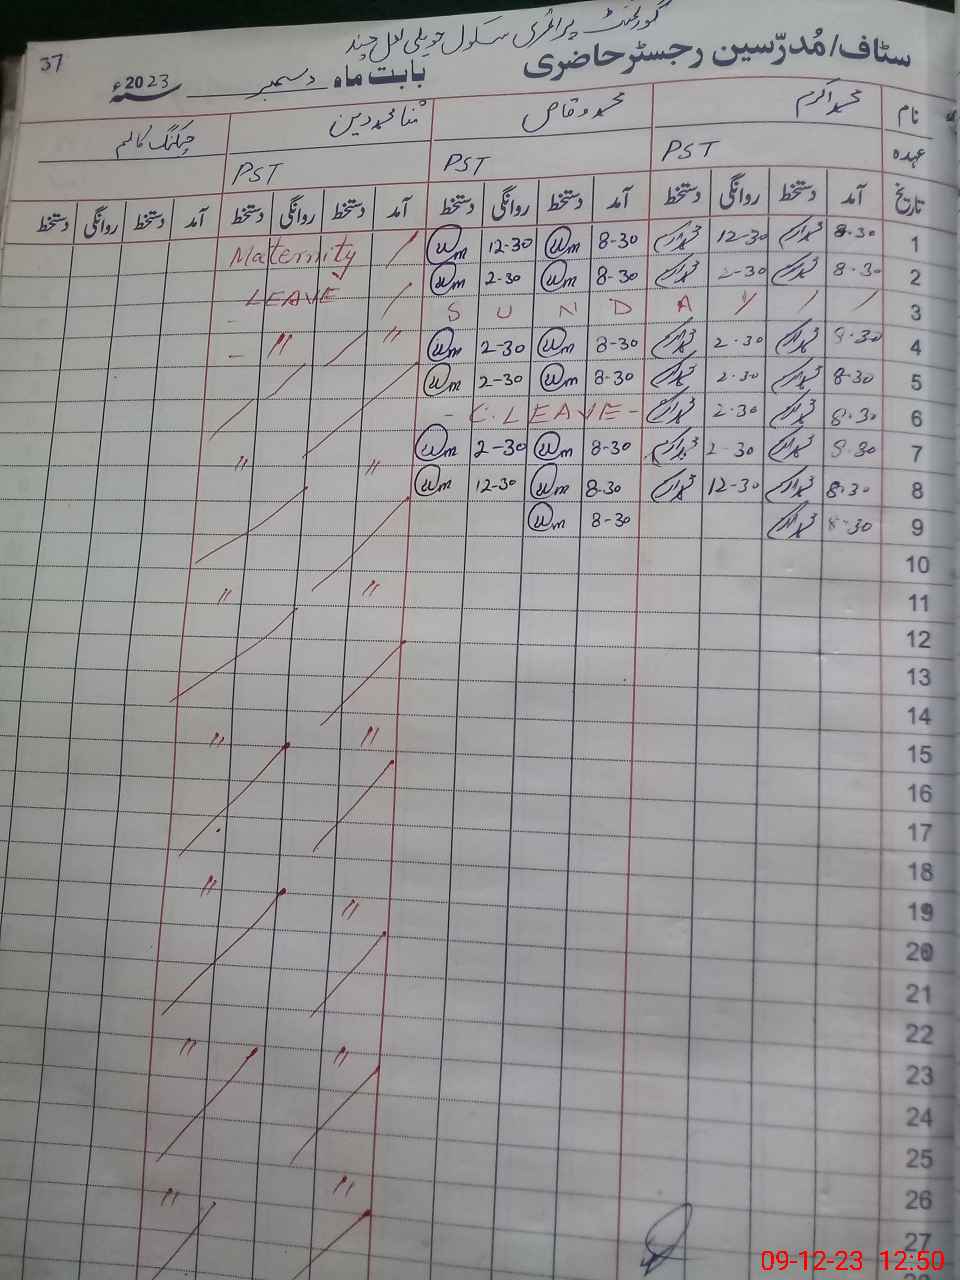 37
گورنمنٹ پرائمری سکول حویلی لعل چند
سٹاف/مُدرّسین رجسٹر حاضری
بابت ماہ دسمبر 2023ء
نام محمد اکرم محمد وقاص ثنا محمد دین چیکنگ کالم
عہدہ PST PST PST
تاریخ آمد دستخط روانگی دستخط آمد دستخط روانگی دستخط آمد دستخط روانگی دستخط آمد دستخط روانگی دستخط
1 8-30 12-30 8-30 12-30 Maternity
2 8-30 2-30 8-30 2-30 LEAVE
3 S U N D A Y
4 8-30 2-30 8-30 2-30 " "
5 8-30 2-30 8-30 2-30
6 8-30 2-30 - C. LEAVE -
7 8-30 2-30 8-30 2-30 " "
8 8-30 12-30 8-30 12-30
9 8-30 8-30
10
11 " "
12
13
14
15 " "
16
17
18
19 " "
20
21
22
23 " "
24
25
26 " "
27
09-12-23 12:50